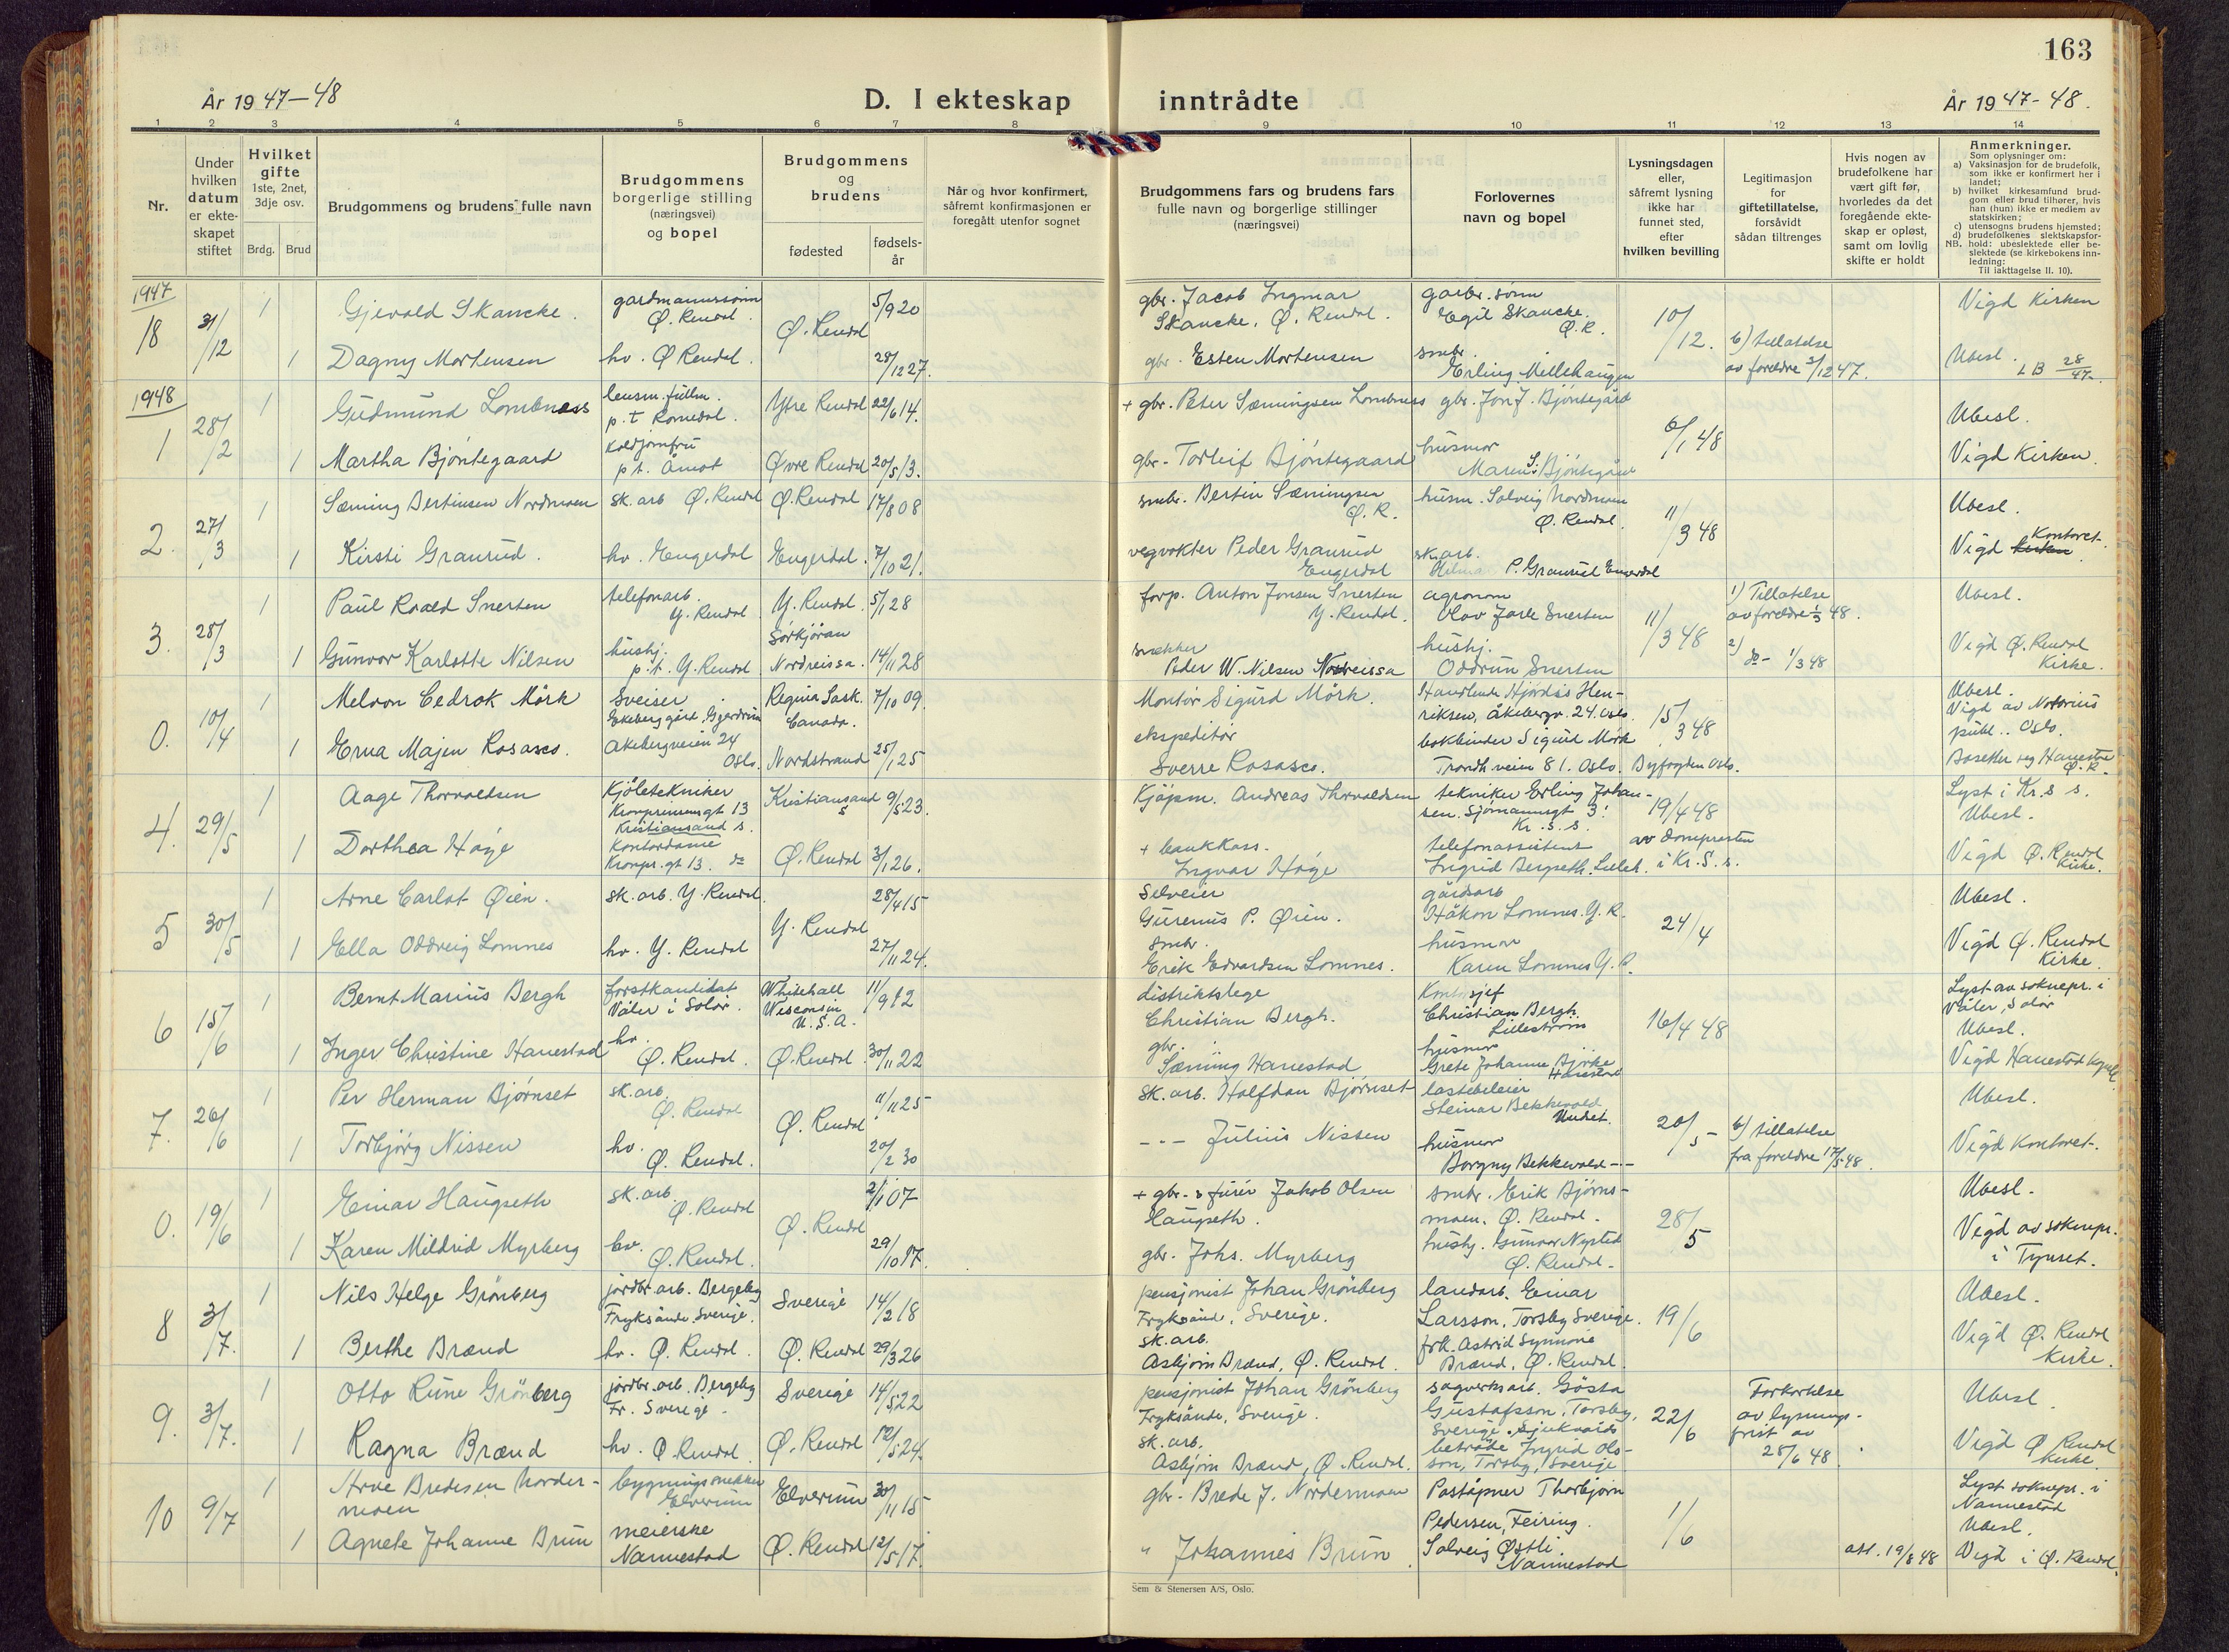 163
År 1947–48
D. I ekteskap inntrådte
År 1947-48.
1 2 3 4 5 6 7 8 9 10 11 12 13 14
Nr.
Under hvilken datum er ekteskapet stiftet
Hvilket gifte 1ste, 2net, 3dje osv.
Brdg. Brud
Brudgommens og brudens fulle navn
Brudgommens borgerlige stilling (næringsvei) og bopel
Brudgommens og brudens
fødested
fødselsår
Når og hvor konfirmert, såfremt konfirmasjonen er foregått utenfor sognet
Brudgommens fars og brudens fars fulle navn og borgerlige stillinger (næringsvei)
Forlovernes navn og bopel
Lysningsdagen eller, såfremt lysning ikke har funnet sted, efter hvilken bevilling
Legitimasjon for giftetillatelse, forsåvidt sådan tiltrenges
Hvis nogen av brudefolkene har vært gift før, hvorledes da det foregående ekteskap er opløst, samt om lovlig skifte er holdt
Anmerkninger.
Som oplysninger om:
a) Vaksinasjon for de brudefolk, som ikke er konfirmert her i landet;
b) hvilket kirkesamfund brudgom eller brud tilhører, hvis han (hun) ikke er medlem av statskirken;
c) utensogns brudens hjemsted;
d) brudefolkenes slektskapsforhold: ubeslektede eller beslektede (se kirkebokens innledning:
NB.
Til iakttagelse II. 10).
1947
18 31/12 1 Gjevald Skancke. gardmannssønn Ø. Rendal. Ø. Rendal 5/9 20 gbr. Jacob Ingmar Skancke, Ø. Rendal. garbr. sønn Egil Skancke. Ø. R. 10/12. Vigd Kirken
1 Dagny Mortensen hv. Ø Rendal. 28/12 27. gbr. Esten Mortensen smbr. Erling Millehaugen b) tillatelse av foreldre 3/12 47. Ubesl. LB 28/47
1948
1 28/2 1 Gudmund Lombnæss lensm. fullm. p. t Romedal. Ytre Rendal 22/6 14. + gbr. Peter Sæmingsen Lombnæss gbr. Jon J. Bjöntegård 6/1 48 Ubesl.
1 Martha Bjöntegaard koldjomfru p t. Åmot Øvre Rendal 20/5 13. gbr. Torleif Bjöntegaard husmor Maren S. Bjöntegård Vigd Kirken
2. 27/3 1 Sæming Bertinsen Nordmoen sk. arb Ø. Rendal Ø. Rendal 17/8 08 smbr. Bertin Sæmingsen Ø. R. husm. Solveig Nordmoen Ø. Rendal. 11/3 48 Ubesl.
1 Kirsti Granrud. hv. Engerdal Engerdal. 7/10 21. vegvokter Peder Granrud Engerdal sk. arb. P. Granrud Engerdal Vigd kirken Kontoret.
3. 28/3 1 Paul Roald Snerten telefonarb. Y. Rendal Y. Rendal. 5/1 28 forp. Anton Jonsen Snerten Y. Rendal. agronom Olav Jarle Snerten 11/3 48 1) Tillatelse av foreldre 1/3 48. Ubesl.
1 Gunvor Karlotte Nilsen hushj. p. t. Y. Rendal Sörkjöran Nordreissa. 14/11 28 snekker Peder W. Nilsen Nordreissa hushj. Oddrun Snerten 2) do – 1/3 48 Vigd Ø. Rendal Kirke.
0. 10/4 1 Melvon Cedrok Mörk Sveiser Ekeberg gård, Gjerdrum Regina Sask. Canada. 7/10 09. Montör Sigurd Mörk. Handlende Hjördis Henriksen, Åkebergv. 24. Oslo. 15/3 48 Ubesl. Vigd av Notorius publ. Oslo.
1 Erna Majen Rosasco. Akebergveien 24 Oslo. Nordstrand 25/1 25 ekspeditör Sverre Rosasco. bokbinder Sigurd Mörk Trondh. veien 81. Oslo. Byfogden Oslo. Bosetter seg Hanestad Ø. R.
4. 29/5 1 Aage Thorvaldsen Kjöletekniker Kronprinsensgt 13 Kristiansand s. Kristiansand s 9/5 23. Kjöpm. Andreas Thorvaldsen tekniker Erling Johansen. Sjömannsgt 3. Kr. S. s. 19/4 48 Lyst i Kr. S s. Ubesl.
1 Dorthea Höye Kontordame Kronpr. gt 13. do Ø. Rendal 3/1 26. + bankkass. Ingvar Höye telefonassistent Ingrid Bergseth. Lilleh. av domprosten i Kr. S. s. Vigd Ø. Rendal Kirke.
5 30/5 1 Arne Carlot Øien. sk. arb. Y. Rendal. Y. Rendal 28/4 15 selveier Gurenus P. Øien. gårdsarb Håkon Lomnes. Y. R. 24/4 Ubesl.
1 Ella Oddveig Lomnes hv. Y. Rendal 27/11 24. smbr. Erik Edvardsen Lomnes. husmor Karen Lomnes Y. R. Vigd Ø. Rendal Kirke.
6 15/6 1 Bernt Marius Bergh forstkandidat Våler i Solör. Whitehall Wisconsin U. S. A. 11/9 12 distriktslege Christian Bergh. Kontorsjef Christian Bergh. Lilleström 16/4 48 Lyst av soknepr. i Våler, Solör Ubesl.
1 Inger Christine Hanestad hv. Ø. Rendal. Ø. Rendal 30/11 22 gbr. Sæming Hanestad husmor Grete Johanne Björke Hanestad Vigd Hanestad kapell.
7. 26/6 1 Per Herman Bjørnset sk. arb. Ø. Rendal Ø. Rendal 11/11 25 sk. arb. Halfdan Bjørnset lastebileier Steinar Bekkevold Undset. 20/5 – Ubesl.
1 Torbjörg Nissen hv. Ø. Rendal. 20/2 30 - - - Julius Nissen husmor Borgny Bekkevold --- b) tillatelse fra foreldre 17/5 48. Vigd Kontoret.
0. 19/6 1 Einar Haugseth sk. arb. Ø. Rendal Ø. Rendal 2/1 07 + gbr. s furér Jakob Olsen Haugseth. smbr. Erik Bjørnsmoen. Ø. Rendal. 28/5 Ubesl.
1 Karen Mildrid Myrberg hv. Ø. Rendal. 29/10 17. gbr. Johs. Myrberg hushj. Gunvor Nysted Ø. Rendal. Vigd av soknepr. i Tynset.
8 3/7. 1 Nils Helge Grönberg jordbr. arb. Bergeby Fryksände. Sverige. Sverige 14/2 18 pensjonist Johan Grönberg Fryksände, Sverige. landarb. Einar Larsson, Torsby Sverige. 19/6 Ubesl.
1 Berthe Brænd hv. Ø. Rendal. Ø. Rendal 29/3 26 sk. arb. Asbjörn Brænd, Ø. Rendal. frk. Astrid Synnöve Brænd, Ø. Rendal. Vigd Ø. Rendal Kirke.
9. 3/7. 1 Otto Rune Grönberg jordbr. arb. Bergeby Fr. Sverige. Sverige 14/5 22 pensjonist Johan Grönberg Fryksände, Sverige. sagverksarb. Gösta Gustafsson, Torsby, Sverige. 22/6 Forkortelse av lysningsfrist av 28/6 48 Ubesl.
1 Ragna Brænd hv. Ø. Rendal Ø. Rendal 12/5 24. sk. arb. Asbjörn Brænd, Ø. Rendal. Sjukvårdsbeträde Ingrid Olsson, Torsby, Sverige Vigd Ø Rendal Kirke.
10 9/7 1 Arve Bredesen Nordermoen bygningssnekker Elverum Elverum 30/11 15 gbr. Brede J. Nordermoen Poståpner Thorbjörn Pedersen, Feiring. 1/6 Lyst soknepr. i Nannestad Ubesl.
1 Agnete Johanne Brun meierske Nannestad Ø. Rendal 12/5 17. " Johannes Brun Solveig Østli. Nannestad att. 19/8 48 Vigd i Ø. Rendal.
Sem & Stenersen A/S, Oslo.